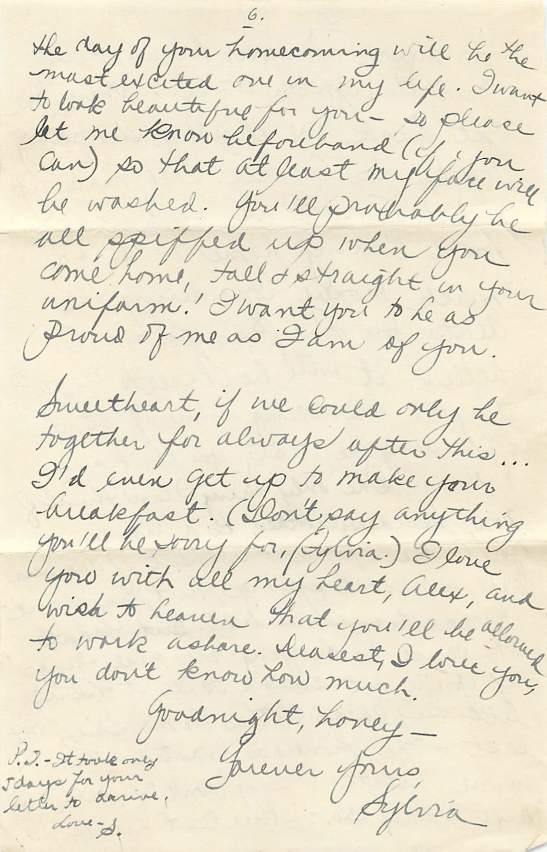 6.
the day of your homecoming will be the
most excited one in my life. I want
to look beautiful for you – so please
let me know beforehand (if you
can) so that at least my face will
be washed. You'll probably be
all spiffed up when you
come home, tall & straight in your
uniform! I want you to be as
proud of me as I am of you.
Sweetheart, if we could only be
together for always after this...
I'd even get up to make your
breakfast. (Don't say anything
you'll be sorry for, Sylvia.) I love
you with all my heart, Alex, and
wish to heaven that you'll be allowed
to work ashore. Dearest, I love you,
you don't know how much.
Goodnight, honey –
Forever yours,
Sylvia
P.S. - It took only
5 days for your
letter to arrive.
Love - S.